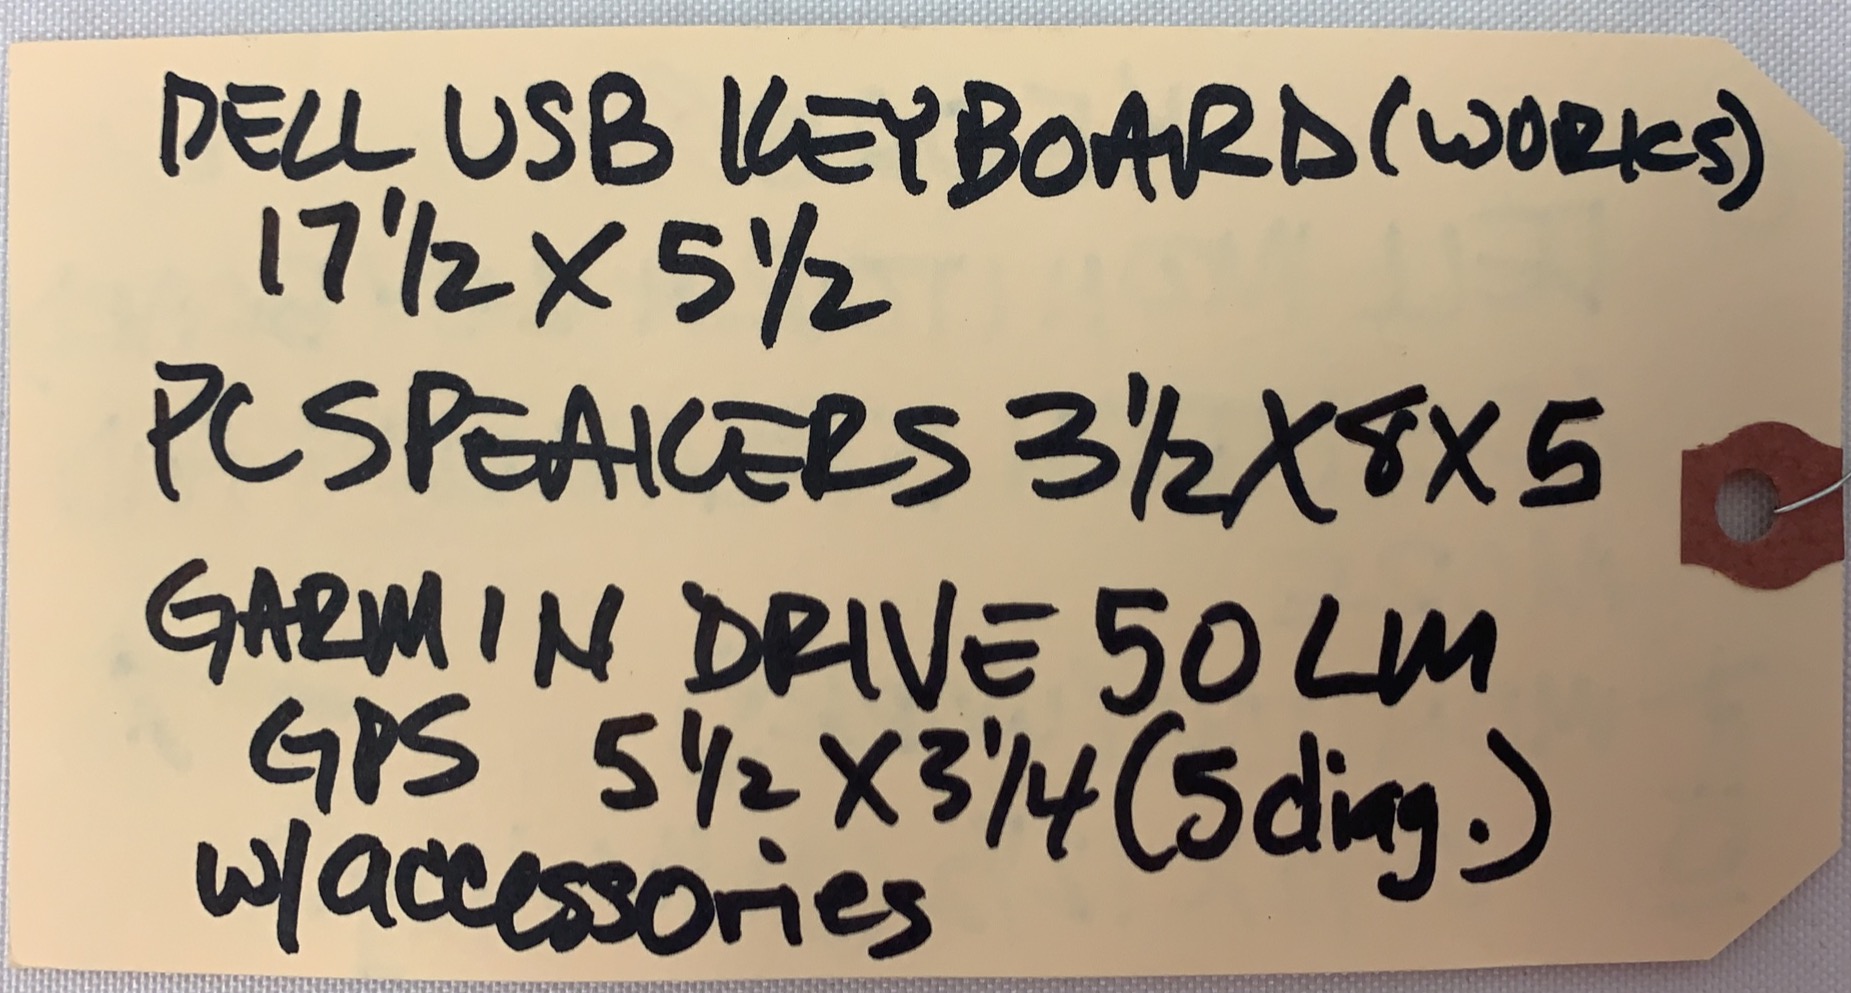 DELL USB KEYBOARD (WORKS)
17 1/2 X 5 1/2
PC SPEAKERS 3 1/2 X 8 X 5
GARMIN DRIVE 50 LM
GPS 5 1/2 X 3 1/4 (5 diag.)
w/accessories